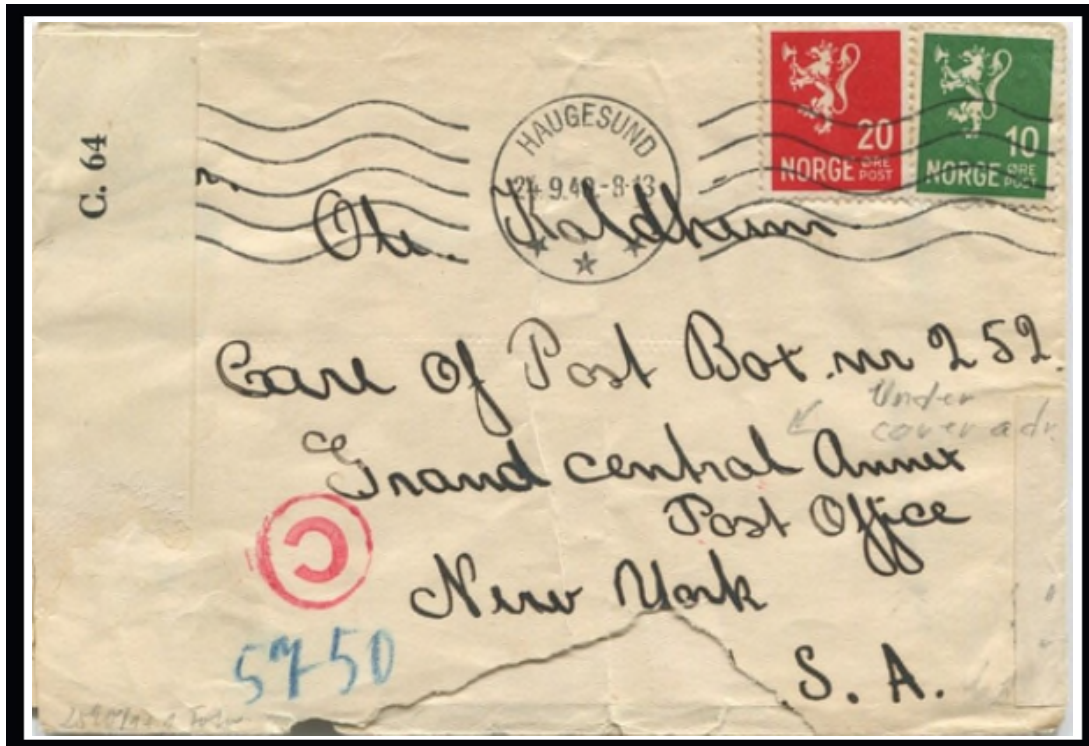 C. 64
HAUGESUND
24. 9.40.-8-13
20
NORGE ØRE POST
10
NORGE ØRE POST
Kaldheim
Care Of Post Box. nr 252.
Under
cover adr.
Grand central Annex
Post Office
New York
S. A.
C
5750